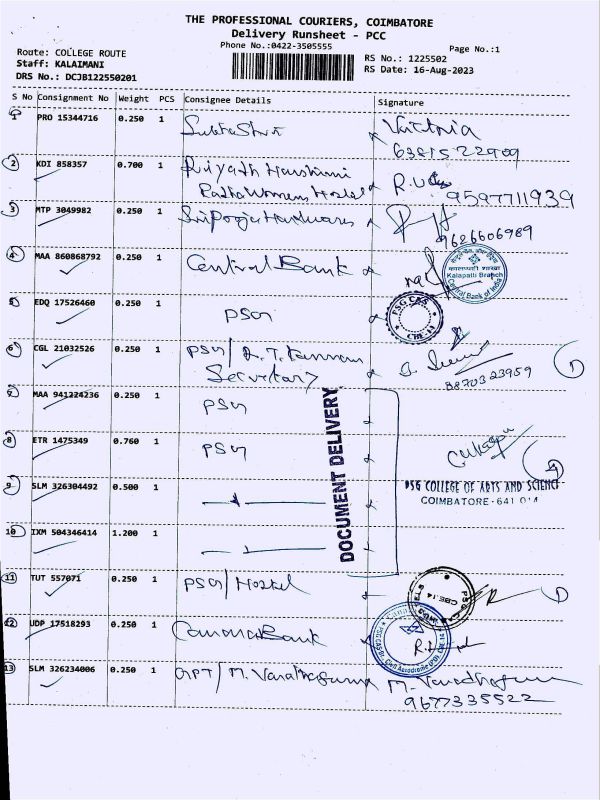 THE PROFESSIONAL COURIERS, COIMBATORE
Delivery Runsheet - PCC
Phone No.:0422-3505555
Page No.:1
Route: COLLEGE ROUTE
Staff: KALAIMANI
DRS No.: DCJB122550201
RS No.: 1225502
RS Date: 16-Aug-2023
S No Consignment No Weight PCS Consignee Details Signature
PRO 15344716 0.250 1
Victoria
2 KDI 858357 0.700 1
9597711939
3 MTP 3049982 0.250 1
9626606989
4 MAA 860868792 0.250 1 Central Bank
Kalapatti Branch
Central Bank of India
5 EDQ 17526460 0.250 1 PSG
PSG CAS
CBE-14
6 CGL 21032526 0.250 1 PSG/
Secretary
8870323959
7 MAA 941224236 0.250 1 PSG
DOCUMENT DELIVERY
8 ETR 1475349 0.760 1 PSG
9 SLM 326304492 0.500 1
PSG COLLEGE OF ARTS AND SCIENCE
COIMBATORE-641 014
10 IXM 504346414 1.200 1
11 TUT 557071 0.250 1 PSG/Hostel
CBE.14
12 UDP 17518293 0.250 1 Canara Bank
13 SLM 326234006 0.250 1
9677335522